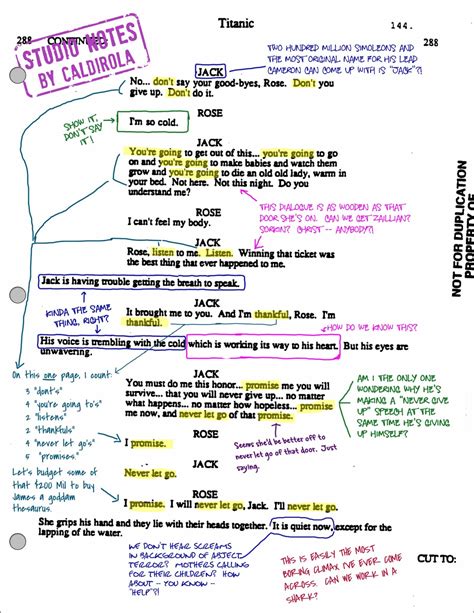 Titanic
144.
288 CONTINUED:
288
STUDIO NOTES
BY CALDIROLA
TWO HUNDRED MILLION SIMOLEONS AND
THE MOST ORIGINAL NAME FOR HIS LEAD
CAMERON CAN COME UP WITH IS "JACK"?!
JACK
No... don't say your good-byes, Rose. Don't you
give up. Don't do it.
ROSE
I'm so cold.
SHOW IT,
DON'T SAY
IT!
JACK
You're going to get out of this... you're going to go
on and you're going to make babies and watch them
grow and you're going to die an old old lady, warm in
your bed. Not here. Not this night. Do you
understand me?
ROSE
I can't feel my body.
THIS DIALOGUE IS AS WOODEN AS THAT
DOOR SHE'S ON. CAN WE GET ZALLIAN?
SORKIN? CHRIST -- ANYBODY?!
JACK
Rose, listen to me. Listen. Winning that ticket was
the best thing that ever happened to me.
NOT FOR DUPLICATION
PROPERTY OF
Jack is having trouble getting the breath to speak.
KINDA THE SAME
THING, RIGHT?
JACK
It brought me to you. And I'm thankful, Rose. I'm
thankful.
HOW DO WE KNOW THIS?
His voice is trembling with the cold which is working its way to his heart. But his eyes are
unwavering.
On this one page, I count:
3 "dont's"
4 "you're going to's"
2 "listens"
2 "thankfuls"
4 "never let go's"
5 "promises."
Let's budget some of
that $200 Mil to buy
James a goddam
thesaurus.
JACK
You must do me this honor... promise me you will
survive... that you will never give up... no matter
what happens... no matter how hopeless... promise
me now, and never let go of that promise.
AM I THE ONLY ONE
WONDERING WHY HE'S
MAKING A "NEVER GIVE
UP" SPEECH AT THE
SAME TIME HE'S GIVING
UP HIMSELF?
ROSE
I promise.
Seems she'd be better off to
never let go of that door. Just
saying.
JACK
Never let go.
ROSE
I promise. I will never let go, Jack. I'll never let go.
She grips his hand and they lie with their heads together. It is quiet now, except for the
lapping of the water.
WE DON'T HEAR SCREAMS
IN BACKGROUND OF ABJECT
TERROR? MOTHERS CALLING
FOR THEIR CHILDREN? HOW
ABOUT -- YOU KNOW --
"HELP"?!
THIS IS EASILY THE MOST
BORING CLIMAX I'VE EVER COME
ACROSS. CAN WE WORK IN A
SHARK?
CUT TO: